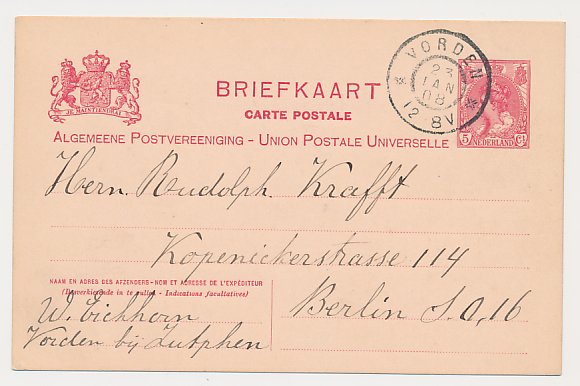 VORDEN
23 JAN 08
12-8V
JE MAINTIENDRAI
BRIEFKAART
CARTE POSTALE
ALGEMEENE POSTVEREENIGING - UNION POSTALE UNIVERSELLE
5 NEDERLAND Ct
Hern. Rudolph. Krafft
Kopenickerstrasse 114
Berlin S.O, 16
NAAM EN ADRES DES AFZENDERS - NOM ET ADRESSE DE L'EXPÉDITEUR
(Desverkiezende in te vullen - Indications facultatives)
W. Eickhorn
Vorden bij Zutphen